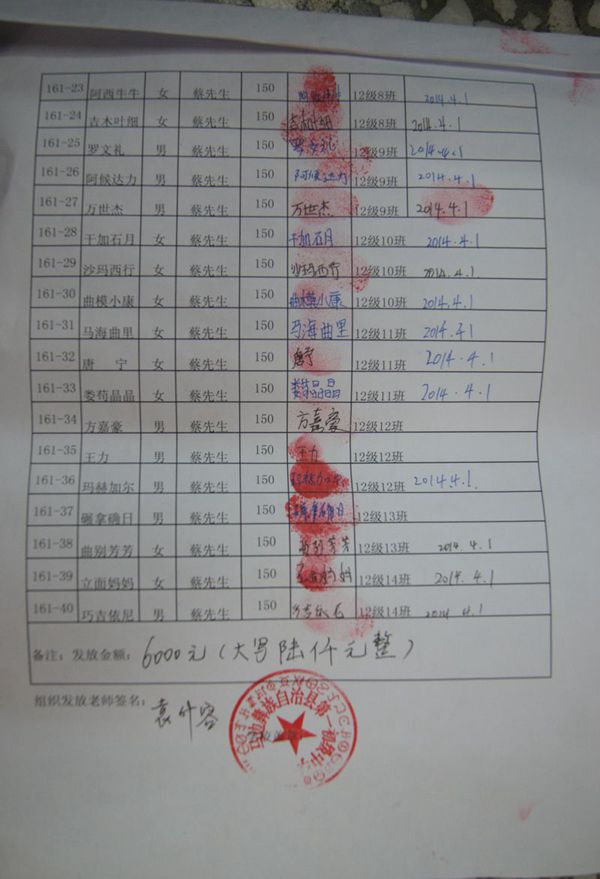 161-23 阿西牛牛 女 蔡先生 150 12级8班 2014.4.1
161-24 吉木叶细 女 蔡先生 150 吉木叶细 12级8班 2014.4.1
161-25 罗文礼 男 蔡先生 150 罗文礼 12级9班 2014.4.1
161-26 阿候达力 男 蔡先生 150 阿候达力 12级9班 2014.4.1
161-27 万世杰 男 蔡先生 150 万世杰 12级9班 2014.4.1
161-28 干加石月 女 蔡先生 150 干加石月 12级10班 2014.4.1
161-29 沙玛西行 女 蔡先生 150 沙玛西行 12级10班 2014.4.1
161-30 曲模小康 女 蔡先生 150 曲模小康 12级10班 2014.4.1
161-31 马海曲里 女 蔡先生 150 马海曲里 12级11班 2014.4.1
161-32 唐 宁 女 蔡先生 150 唐宁 12级11班 2014.4.1
161-33 娄荀晶晶 女 蔡先生 150 12级11班 2014.4.1
161-34 方嘉豪 男 蔡先生 150 方嘉豪 12级12班
161-35 王力 男 蔡先生 150 王力 12级12班
161-36 玛赫加尔 男 蔡先生 150 12级12班 2014.4.1
161-37 碾拿确日 男 蔡先生 150 12级13班
161-38 曲别芳芳 女 蔡先生 150 曲别芳芳 12级13班 2014.4.1
161-39 立面妈妈 女 蔡先生 150 12级14班 2014.4.1
161-40 巧吉依尼 男 蔡先生 150 12级14班 2014.4.1
备注：发放金额：6000元（大写陆仟元整）
组织发放老师签名：
彝族自治县第一初级中学